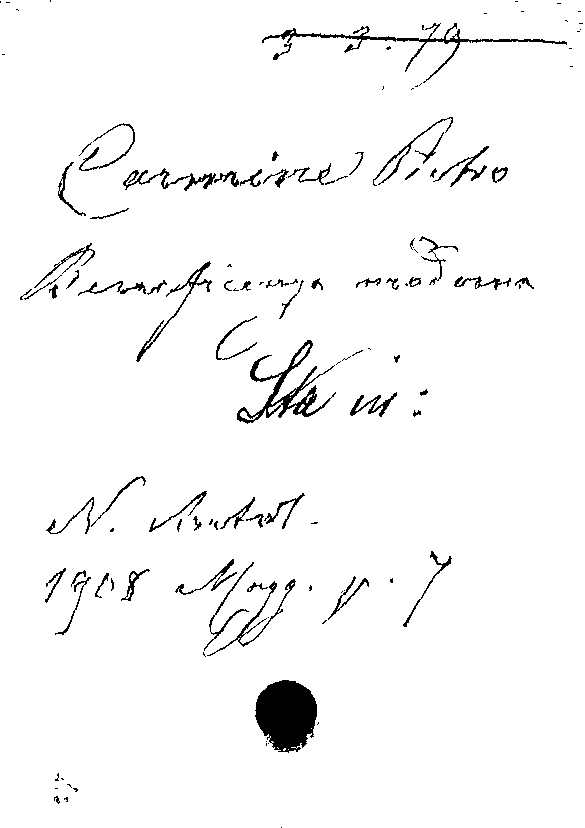 3 3.79
Carmine Pietro
Beneficenza moderna
Sta in:
N. Antol.
1908 Magg. p. 7